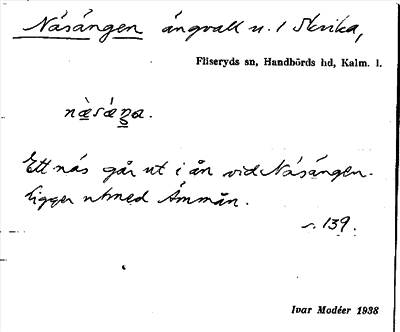 Näsängen ängvall u. 1 Skvika,
Fliseryds sn, Handbörds hd, Kalm. l.
næ̀sǽŋa.
Ett näs går ut i ån vid Näsängen.
Ligger utmed Ämmån.
s. 139.
Ivar Modéer 1938